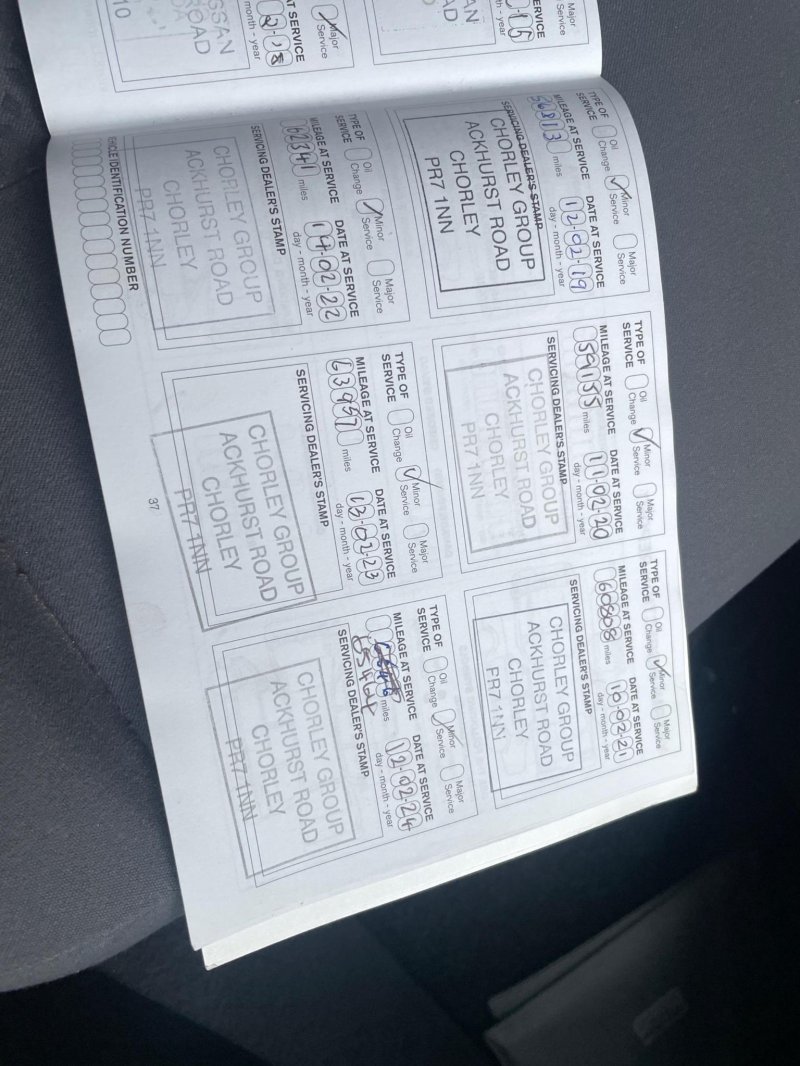 Major
Service
ERVICE
15
month - year
AN
AD
Major
Service
AT SERVICE
2·18
month - year
SSAN
ROAD
10
TYPE OF SERVICE
Oil Change
Minor Service
Major Service
MILEAGE AT SERVICE
DATE AT SERVICE
56813 miles
12·02·19
day - month - year
SERVICING DEALER'S STAMP
CHORLEY GROUP
ACKHURST ROAD
CHORLEY
PR7 1NN
TYPE OF SERVICE
Oil Change
Minor Service
Major Service
MILEAGE AT SERVICE
DATE AT SERVICE
59155 miles
11·02·20
day - month - year
SERVICING DEALER'S STAMP
CHORLEY GROUP
ACKHURST ROAD
CHORLEY
PR7 1NN
TYPE OF SERVICE
Oil Change
Minor Service
Major Service
MILEAGE AT SERVICE
DATE AT SERVICE
60808 miles
10·02·21
day - month - year
SERVICING DEALER'S STAMP
CHORLEY GROUP
ACKHURST ROAD
CHORLEY
PR7 1NN
TYPE OF SERVICE
Oil Change
Minor Service
Major Service
MILEAGE AT SERVICE
DATE AT SERVICE
62341 miles
14·02·22
day - month - year
SERVICING DEALER'S STAMP
CHORLEY GROUP
ACKHURST ROAD
CHORLEY
PR7 1NN
TYPE OF SERVICE
Oil Change
Minor Service
Major Service
MILEAGE AT SERVICE
DATE AT SERVICE
63957 miles
13·02·23
day - month - year
SERVICING DEALER'S STAMP
CHORLEY GROUP
ACKHURST ROAD
CHORLEY
PR7 1NN
TYPE OF SERVICE
Oil Change
Minor Service
Major Service
MILEAGE AT SERVICE
DATE AT SERVICE
miles
12·02·24
day - month - year
SERVICING DEALER'S STAMP
CHORLEY GROUP
ACKHURST ROAD
CHORLEY
PR7 1NN
VEHICLE IDENTIFICATION NUMBER
37